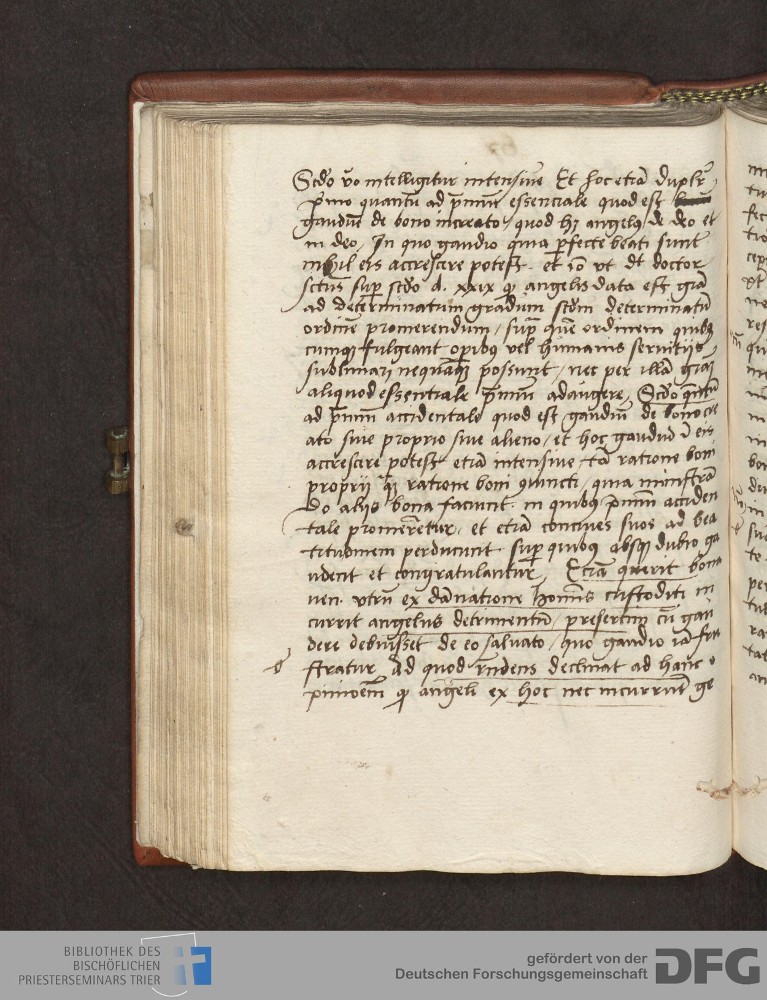 Scdo v̄o intelligitur intensive Et hoc etiā duplr̄,
p̄mo quantū ad p̄miū essenciale quod est
gaudiū de bono increato, quod hn̄t angeli de deo et
in deo, In quo gaudio quia p̄fecte beati sunt
nihil eis accrescere potest. et iō vt dt doctor
sctūs sup scdo d. xxix qꝫ angelis data est grā
ad determinatum gradum scdm determinatū
ordinē promerendum, sup quē ordinem quibꝰ
cumqꝫ fulgeant opibus vel humanis servitijs
sublimari nequaqꝫ possunt, nec per illā grām
aliquod essentiale p̄miū adaugere, Scdo qntū
ad p̄miū accidentale quod est gaudiū de bono cre
ato sive proprio sive alieno, et hoc gaudiū ī eis
accrescere potest etiā intensive tā ratione boni
proprij qꝫ ratione boni ꝯiuncti, quia ministrā
do alijs bona faciunt in quibus p̄miū acciden
tale promeretur, et etiā concives suos ad bea
titudinem perducunt super quibus absqꝫ dubio ga
udent et congratulantur, Etiā querit bona
ven. vtrū ex dānatione hominis custoditi in
currit angelus detrimentū, presertim cū gau
dere debuisset de eo salvato, quo gaudio iā fru
stratur Ad quod rn̄dens declinat ad hanc o
pinioēm qꝫ angeli ex hoc nec incurrunt ge
BIBLIOTHEK DES
BISCHÖFLICHEN
PRIESTERSEMINARS TRIER
gefördert von der
Deutschen Forschungsgemeinschaft
DFG